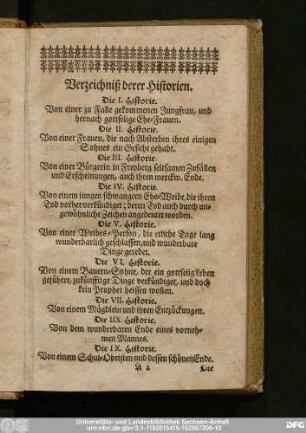 Verzeichniß derer Historien.
Die I. Historie.
Von einer zu Falle gekommenen Jungfrau, und
hernach gottselige Ehe-Frauen.
Die II. Historie.
Von einer Frauen, die nach Absterben ihres einigen
Sohnes ein Gesicht gehabt.
Die III. Historie
Von einer Bürgerin in Freyberg seltsamen Zufällen
und Erscheinungen, auch ihrem merckw. Ende.
Die IV. Historie.
Von einem jungen schwangern Ehe-Weibe die ihren
Tod vorher verkündiget; deren Tod auch durch un-
gewöhnliche Zeichen angedeutet worden.
Die V. Historie.
Von einer Weibes-Person, die etliche Tage lang
wunderbarlich geschlaffen, und wunderbare
Dinge geredet.
Die VI. Historie.
Von einem Bauern-Sohne, der ein gottselig Leben
geführet, zukünfftige Dinge verkündiget, und doch
kein Prophet heissen wollen.
Die VII. Historie.
Von einem Mägdlein und ihren Entzückungen.
Die IIX. Historie.
Von dem wunderbaren Ende eines vorneh-
men Mannes.
Die IX. Historie.
Von einem Schul-Obristen und dessen schönen Ende.
A 2 Die
Universitäts- und Landesbibliothek Sachsen-Anhalt
urn:nbn:de:gbv:3:1-1192015415-152967206-10
DFG